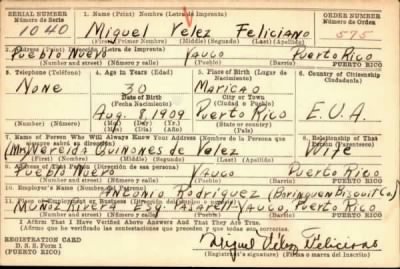 SERIAL NUMBER 1. NAME (Print) Nombre (Letra de Imprenta) ORDER NUMBER
Número de Serie Número de Orden
1040 Miguel Velez Feliciano 575
(First) (Nombre Primero) (Middle) (Segundo) (Last) (Apellido)
2. ADDRESS (Print) Dirección (Letra de Imprenta)
Pueblo Nuevo Yauco Puerto Rico
PUERTO RICO
3. TELEPHONE (Teléfono) 4. AGE IN YEARS (Edad) 5. PLACE OF BIRTH (Lugar de Nacimiento) 6. COUNTRY OF CITIZENSHIP
Ciudadanía
None 30 Maricao
DATE OF BIRTH City or Town
(Fecha Nacimiento) (Ciudad o Pueblo)
Aug. 8, 1909 Puerto Rico E.U.A.
(Number) (Número) (State or country)
7. NAME OF PERSON WHO WILL ALWAYS KNOW YOUR ADDRESS (Nombre de la Persona que siempre sabrá su dirección) 8. RELATIONSHIP OF THAT PERSON (Parentesco)
(Mrs) Nereida Quinones de Velez Wife
(First) (Nombre) (Middle) (Segundo) (Last) (Apellido)
9. ADDRESS OF THAT PERSON (Dirección de esa persona)
Pueblo Nuevo Yauco Puerto Rico
PUERTO RICO
10. EMPLOYER'S NAME (Nombre del Patrono)
Antonio Rodriguez (Borinquen Biscuit Co)
11. PLACE OF EMPLOYMENT OR BUSINESS
Muñoz Rivera Esq. Pasarell Yauco, Puerto Rico
PUERTO RICO
I AFFIRM THAT I HAVE VERIFIED ABOVE ANSWERS AND THAT THEY ARE TRUE.
(Afirmo que he verificado las contestaciones que preceden y que todas son ciertas.)
REGISTRATION CARD
D. S. S. Form 1
PUERTO RICO
Miguel Velez Feliciano
(Registrant's signature) (Firma o marca del inscrito)